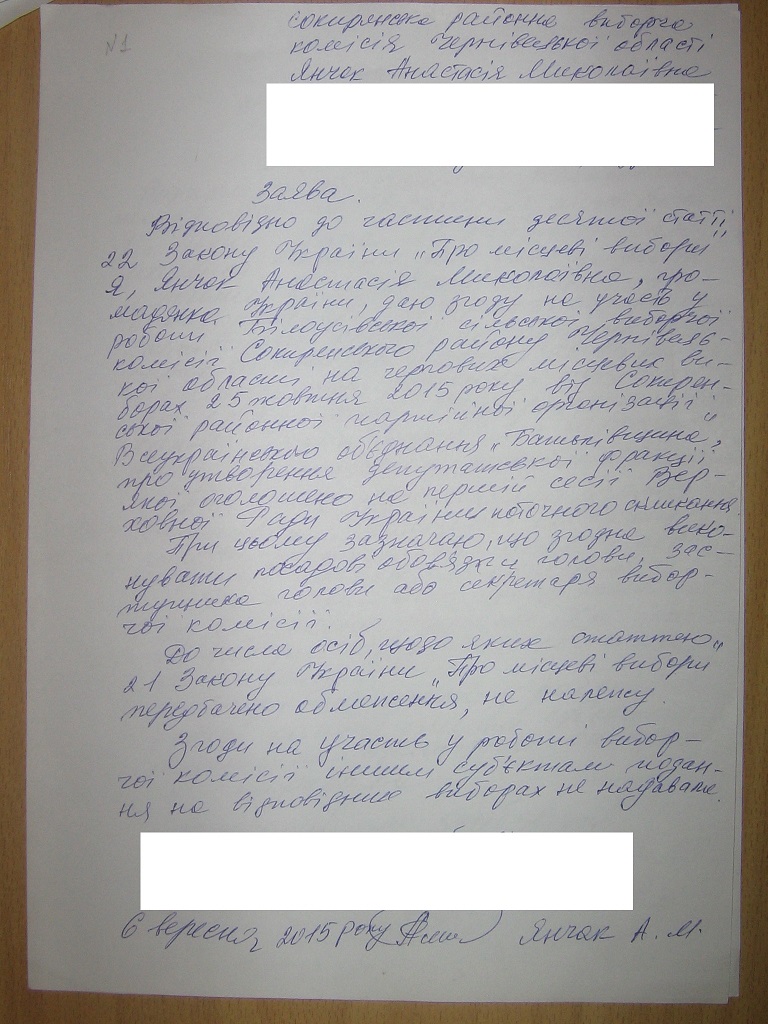 N1
Сокирянська районна виборча
комісія Чернівецької області
Янчак Анастасія Миколаївна
Заява.
Відповідно до частини десятої статті
22 Закону України „Про місцеві вибори"
я, Янчак Анастасія Миколаївна, гро-
мадянка України, даю згоду на участь у
роботі Білоусівської сільської виборчої
комісії Сокиренського району Чернівець-
кої області на чергових місцевих ви-
борах 25 жовтня 2015 року від Сокирен-
ської районної партійної організації
Всеукраїнського об'єднання „Батьківщина",
про утворення депутатської фракції
якої оголошено на першій сесії Вер-
ховної Ради України поточного скликання.
При цьому зазначаю, що згодна вико-
нувати посадові обов'язки голови, зас-
тупника голови або секретаря вибор-
чої комісії.
До числа осіб, щодо яких статтею
21 Закону України „Про місцеві вибори"
передбачено обмеження, не належу.
Згоди на участь у роботі вибор-
чої комісії іншим суб'єктам подан-
ня на відповідних виборах не надавала.
6 вересня 2015 року Янчак А. М.